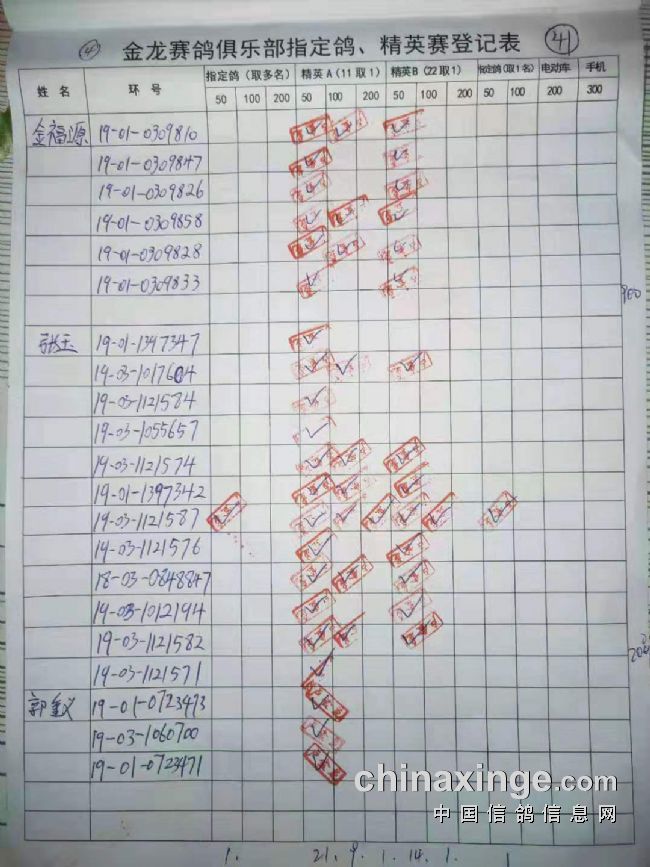 ④ 金龙赛鸽俱乐部指定鸽、精英赛登记表 41
姓 名 环 号 指定鸽（取多名） 精英A（11取1） 精英B（22取1） 指定鸽(取1名) 电动车 手机
50 100 200 50 100 200 50 100 200 50 100 200 300
金福源 19-01-0309810
19-01-0309847
19-01-0309826
19-01-0309858
19-01-0309828
19-01-0309833
900
张玉 19-01-1397347
19-03-1017604
19-03-1121584
19-03-1055657
19-03-1121574
19-01-1397342
19-03-1121587
19-03-1121576
18-03-0848847
19-03-1012194
19-03-1121582
19-03-1121571
郭金义 19-01-0723473
19-03-1060700
19-01-0723471
chinaxinge.com
中国信鸽信息网
1. 21. 9. 1. 14. 1. 1